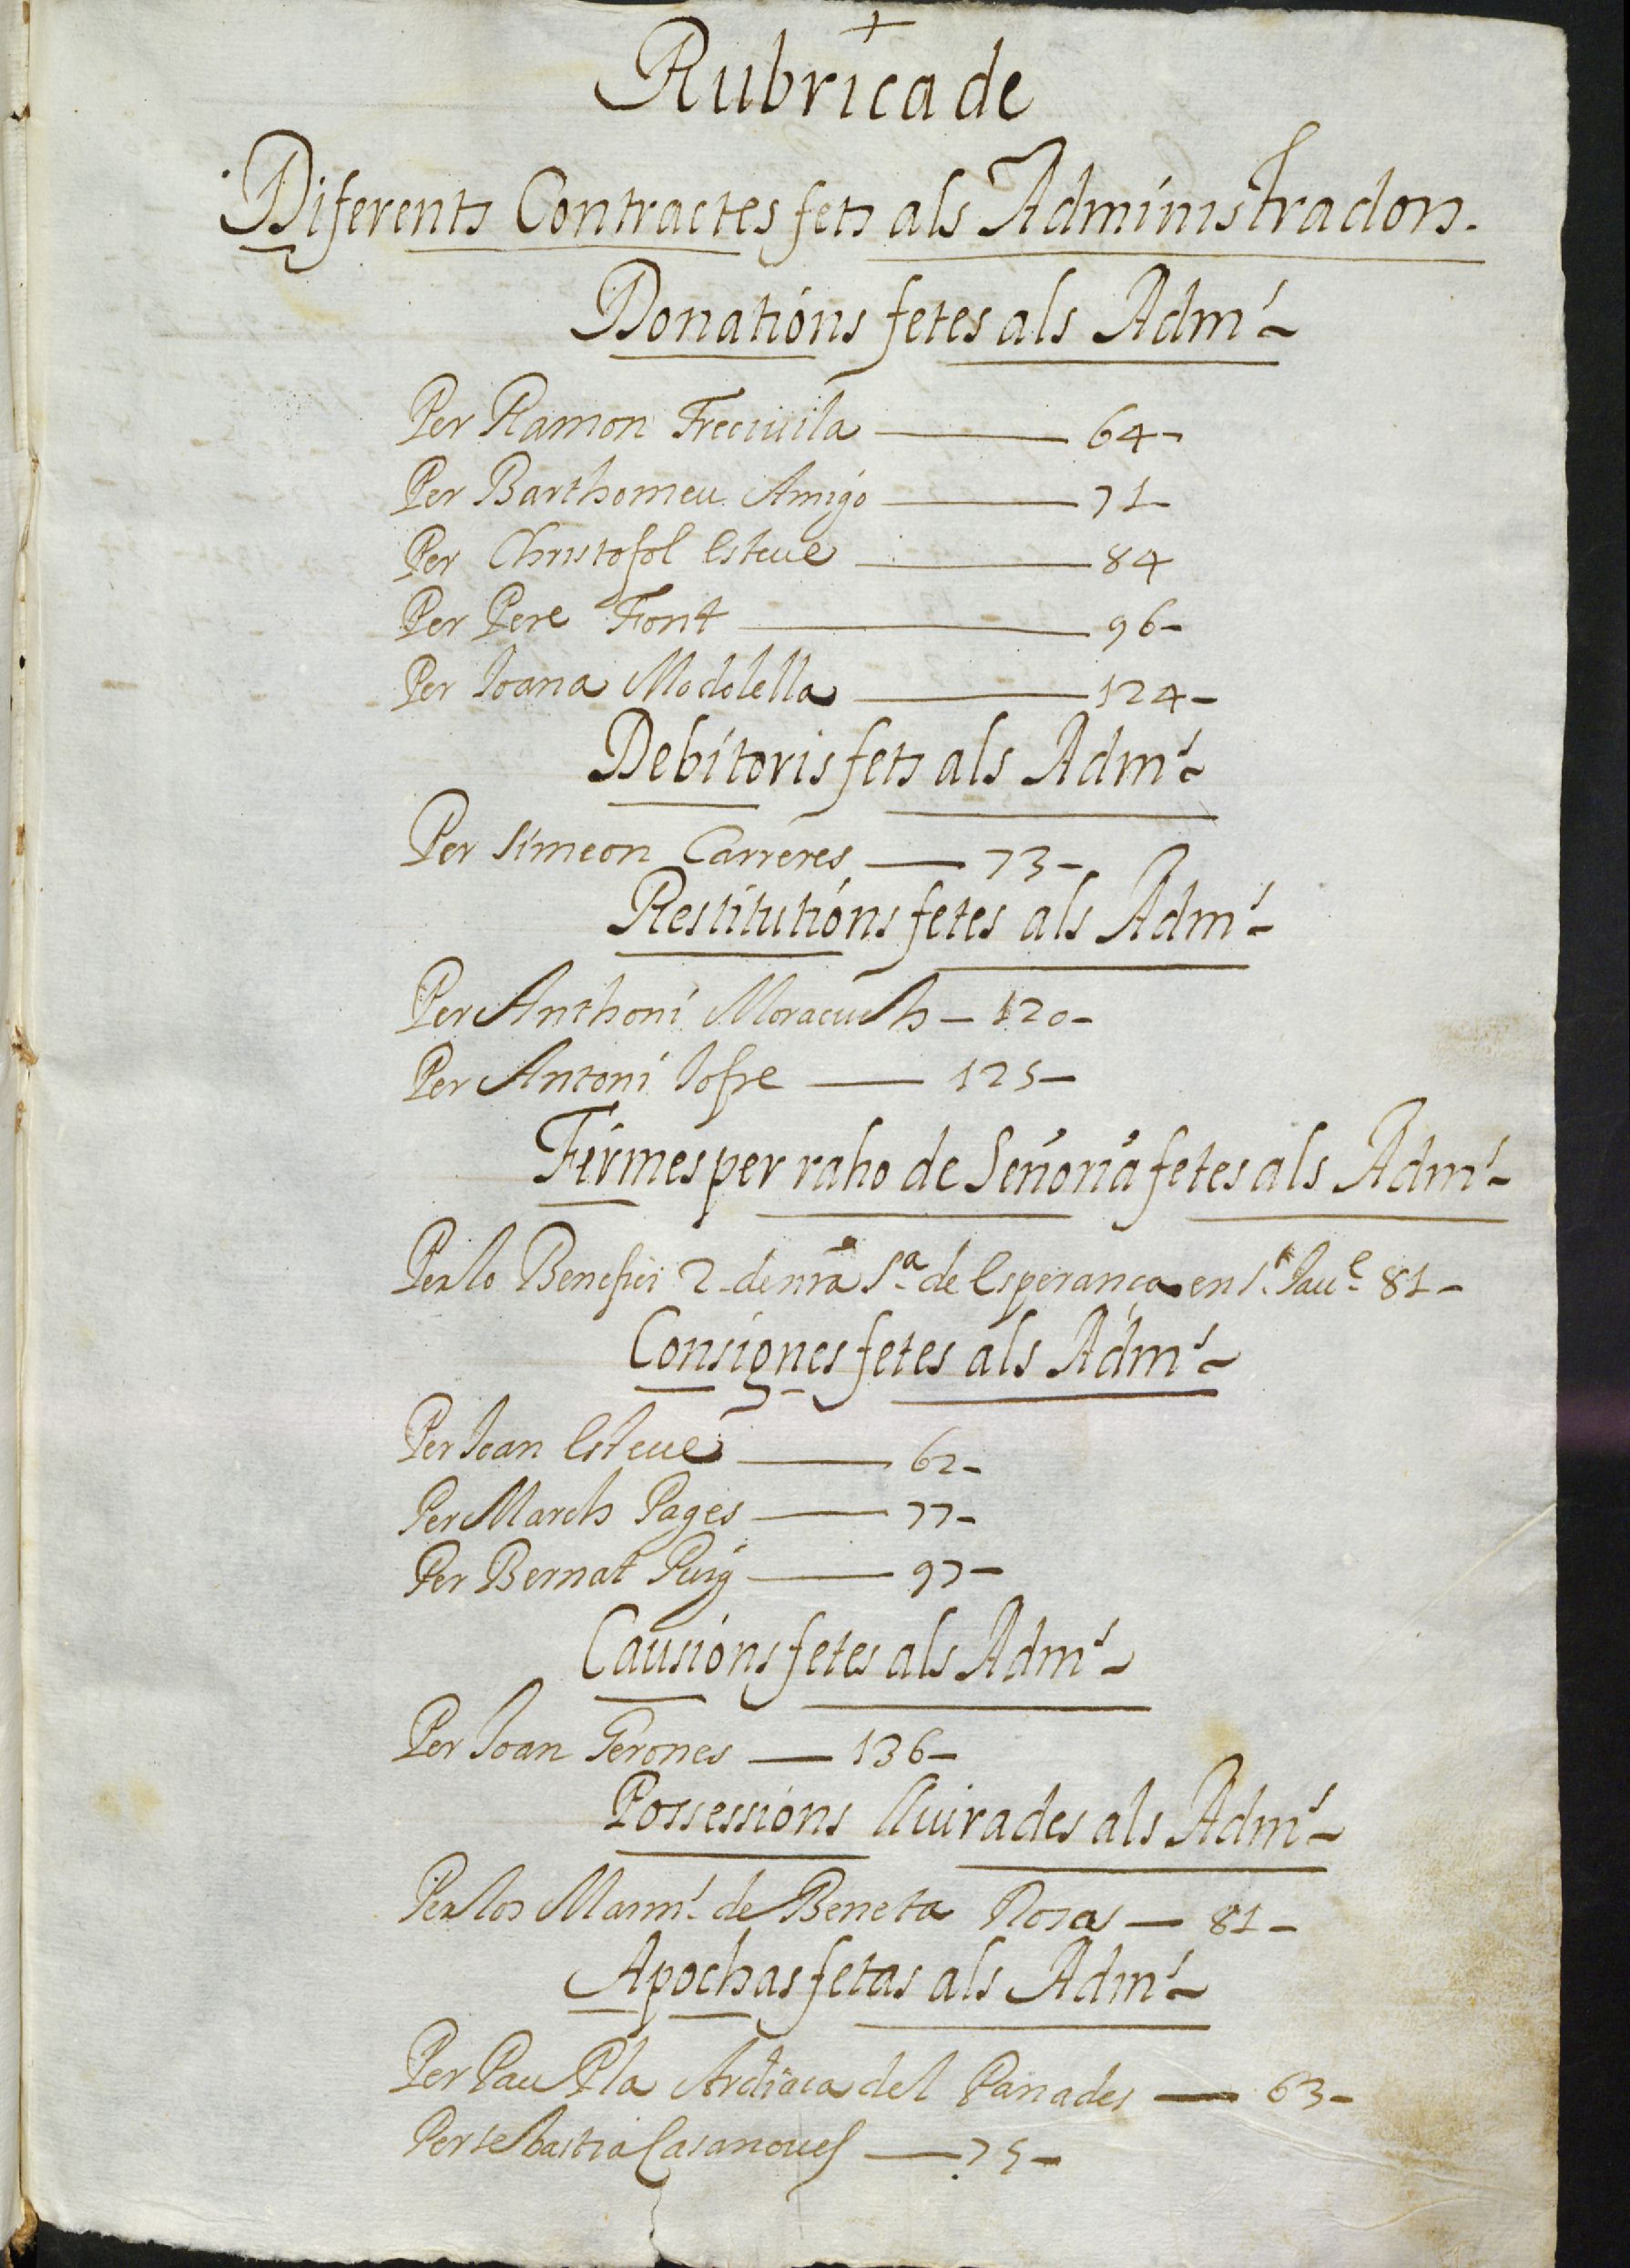 +
Rubrica de
Diferents Contractes fets als Administradors.
Donations fetes als Adm.
Per Ramon Treciuila — 64-
Per Barthomeu Amigo — 71-
Per Christofol Esteue — 84
Per Pere Font — 96-
Per Ioana Modolella — 124-
Debitoris fets als Adm.
Per Simeon Carreres — 73-
Restitutions fetes als Adm.
Per Anthoni — 120-
Per Antoni Iofre — 125-
Firmes per raho de Señoria fetes als Adm.
Per lo Benefici 2 de nra Sa. de Esperança en St. Iaue. 81-
Consignes fetes als Adm.
Per Ioan Esteue — 62-
Per March Pages — 77-
Per Bernat Puig — 97-
Causions fetes als Adm.
Per Ioan Gerones — 136-
Possessions lliurades als Adm.
Per los Marm. de Beneta Rosas — 81-
Apochas fetas als Adm.
Per Pau Pla Ardiaca del Panades — 63-
Per Sebastia Casanoues — 75-